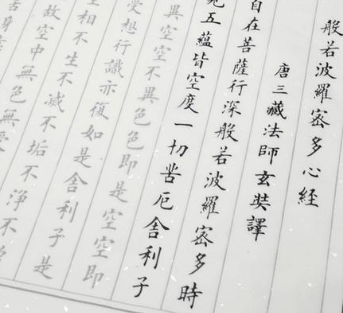 般若波羅密多心經
唐三藏法師玄奘譯
自在菩薩行深般若波羅密多時
五蘊皆空度一切苦厄舍利子
異空空不異色色即是空空即
受想行識亦復如是舍利子是
空相不生不滅不垢不淨不
故空中無色無
舌身